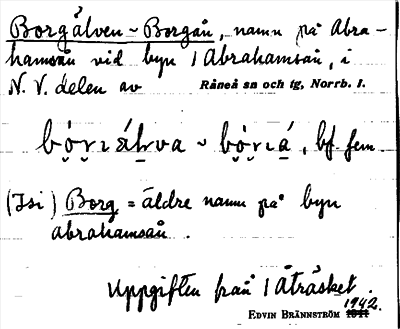 Borgälven ~ Borgån, namn på Abra-
hamsån vid byn 1 Abrahamsån, i
N. V. delen av Råneå sn och tg, Norrb. l.
bf fem.
(Isi) Borg = äldre namn på byn
Abrahamsån.
Uppgiften från 1 Åträsket.
1942.
EDVIN BRÄNNSTRÖM 1941